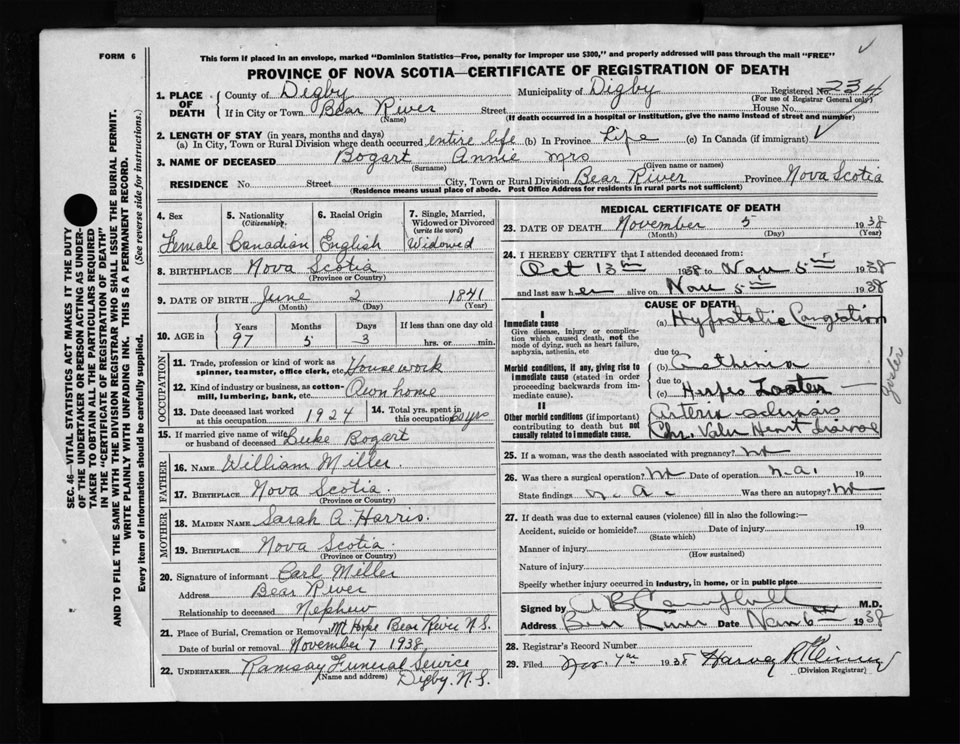 FORM 6
This form if placed in an envelope, marked "Dominion Statistics—Free, penalty for improper use $300," and properly addressed will pass through the mail "FREE"
PROVINCE OF NOVA SCOTIA—CERTIFICATE OF REGISTRATION OF DEATH
SEC. 46—VITAL STATISTICS ACT MAKES IT THE DUTY
OF THE UNDERTAKER OR PERSON ACTING AS UNDER-
TAKER TO OBTAIN ALL THE PARTICULARS REQUIRED
IN THE "CERTIFICATE OF REGISTRATION OF DEATH"
AND TO FILE THE SAME WITH THE DIVISION REGISTRAR WHO SHALL ISSUE THE BURIAL PERMIT.
WRITE PLAINLY WITH UNFADING INK. THIS IS A PERMANENT RECORD.
Every item of Information should be carefully supplied. (See reverse side for instructions.)
1. PLACE OF DEATH
County of Digby Municipality of Digby Registered No. 234
(For use of Registrar General only)
If in City or Town Bear River Street House No.
(Name) (If death occurred in a hospital or institution, give the name instead of street and number)
2. LENGTH OF STAY (in years, months and days)
(a) In City, Town or Rural Division where death occurred entire life (b) In Province Life (c) In Canada (if immigrant)
3. NAME OF DECEASED Bogart Annie Mrs
(Surname) (Given name or names)
RESIDENCE No. Street City, Town or Rural Division Bear River Province Nova Scotia
(Residence means usual place of abode. Post Office Address for residents in rural parts not sufficient)
4. Sex Female
5. Nationality (Citizenship) Canadian
6. Racial Origin English
7. Single, Married, Widowed or Divorced (write the word) Widowed
8. BIRTHPLACE Nova Scotia
(Province or Country)
9. DATE OF BIRTH June 2 1841
(Month) (Day) (Year)
10. AGE in Years Months Days If less than one day old
97 5 3 hrs. or min.
OCCUPATION
11. Trade, profession or kind of work as spinner, teamster, office clerk, etc. Housework
12. Kind of industry or business, as cotton-mill, lumbering, bank, etc. Own home
13. Date deceased last worked at this occupation 1924
14. Total yrs. spent in this occupation 60 yrs
15. If married give name of wife or husband of deceased Luke Bogart
FATHER
16. NAME William Miller.
17. BIRTHPLACE Nova Scotia
(Province or Country)
MOTHER
18. MAIDEN NAME Sarah A. Harris.
19. BIRTHPLACE Nova Scotia.
(Province or Country)
20. Signature of informant Carl Miller
Address Bear River
Relationship to deceased Nephew
21. Place of Burial, Cremation or Removal Mt Hope Bear River N.S.
Date of burial or removal November 7 1938.
22. UNDERTAKER Ramsay Funeral Service
(Name and address) Digby. N.S.
MEDICAL CERTIFICATE OF DEATH
23. DATE OF DEATH November 5 1938
(Month) (Day) (Year)
24. I HEREBY CERTIFY that I attended deceased from:
Oct 13th 1938 to Nov 5th 1938
and last saw her alive on Nov 5th 1938
CAUSE OF DEATH
I
Immediate cause
Give disease, injury or complication which caused death, not the mode of dying, such as heart failure, asphyxia, asthenia, etc
(a) Hypostatic Congestion
due to
Morbid conditions, if any, giving rise to immediate cause (stated in order proceeding backwards from immediate cause).
(b) Asthenia
due to
(c) Herpes Zoster
zoster
II
Other morbid conditions (if important) contributing to death but not causally related to immediate cause.
Arterio sclerosis
Chr. Valv Heart disease
25. If a woman, was the death associated with pregnancy? no
26. Was there a surgical operation? no Date of operation n.a. 19
State findings n.a. Was there an autopsy? no
27. If death was due to external causes (violence) fill in also the following:—
Accident, suicide or homicide? Date of injury 19
(State which)
Manner of injury
(How sustained)
Nature of injury
Specify whether injury occurred in industry, in home, or in public place
Signed by A B Campbell M.D.
Address Bear River Date Nov 6th 1938
28. Registrar's Record Number
29. Filed Nov. 7th 1938
(Division Registrar)